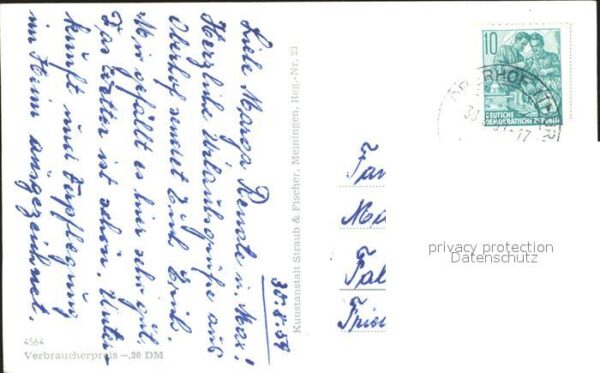 30.8.54
Liebe Marga, Renate u. Max!
Herzliche Urlaubsgrüße aus
Oberhof sendet Euch Erich.
Mir gefällt es hier sehr gut.
Das Wetter ist schön. Unter-
kunft und Verpflegung
im Heim ausgezeichnet.
Kunstanstalt Straub & Fischer, Meiningen, Reg.-Nr. 23
4564
Verbraucherpreis –,20 DM
10
DEUTSCHE
DEMOKRATISCHE REPUBLIK
OBERHOF (THÜR
30
-17
Fam
Ma
Fal
Frie
privacy protection
Datenschutz